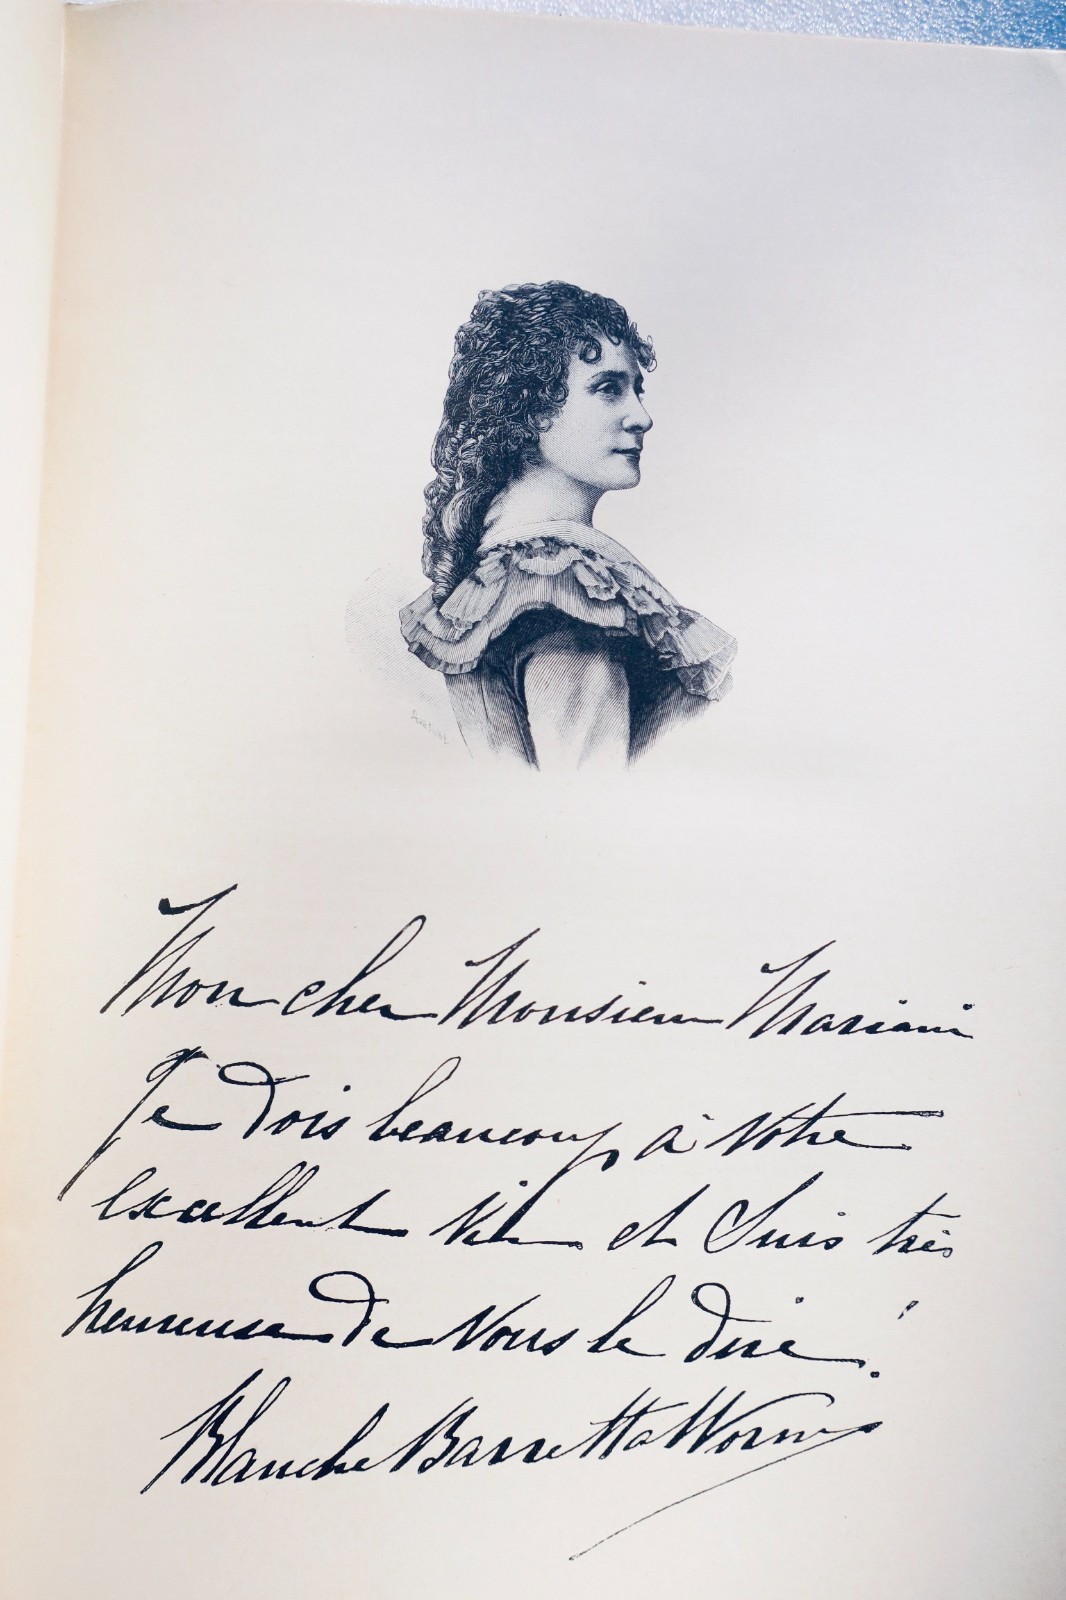 Mon cher Monsieur Mariani
Je dois beaucoup à votre
excellent vin et suis très
heureuse de vous le dire!
Blanche Barretta Worms